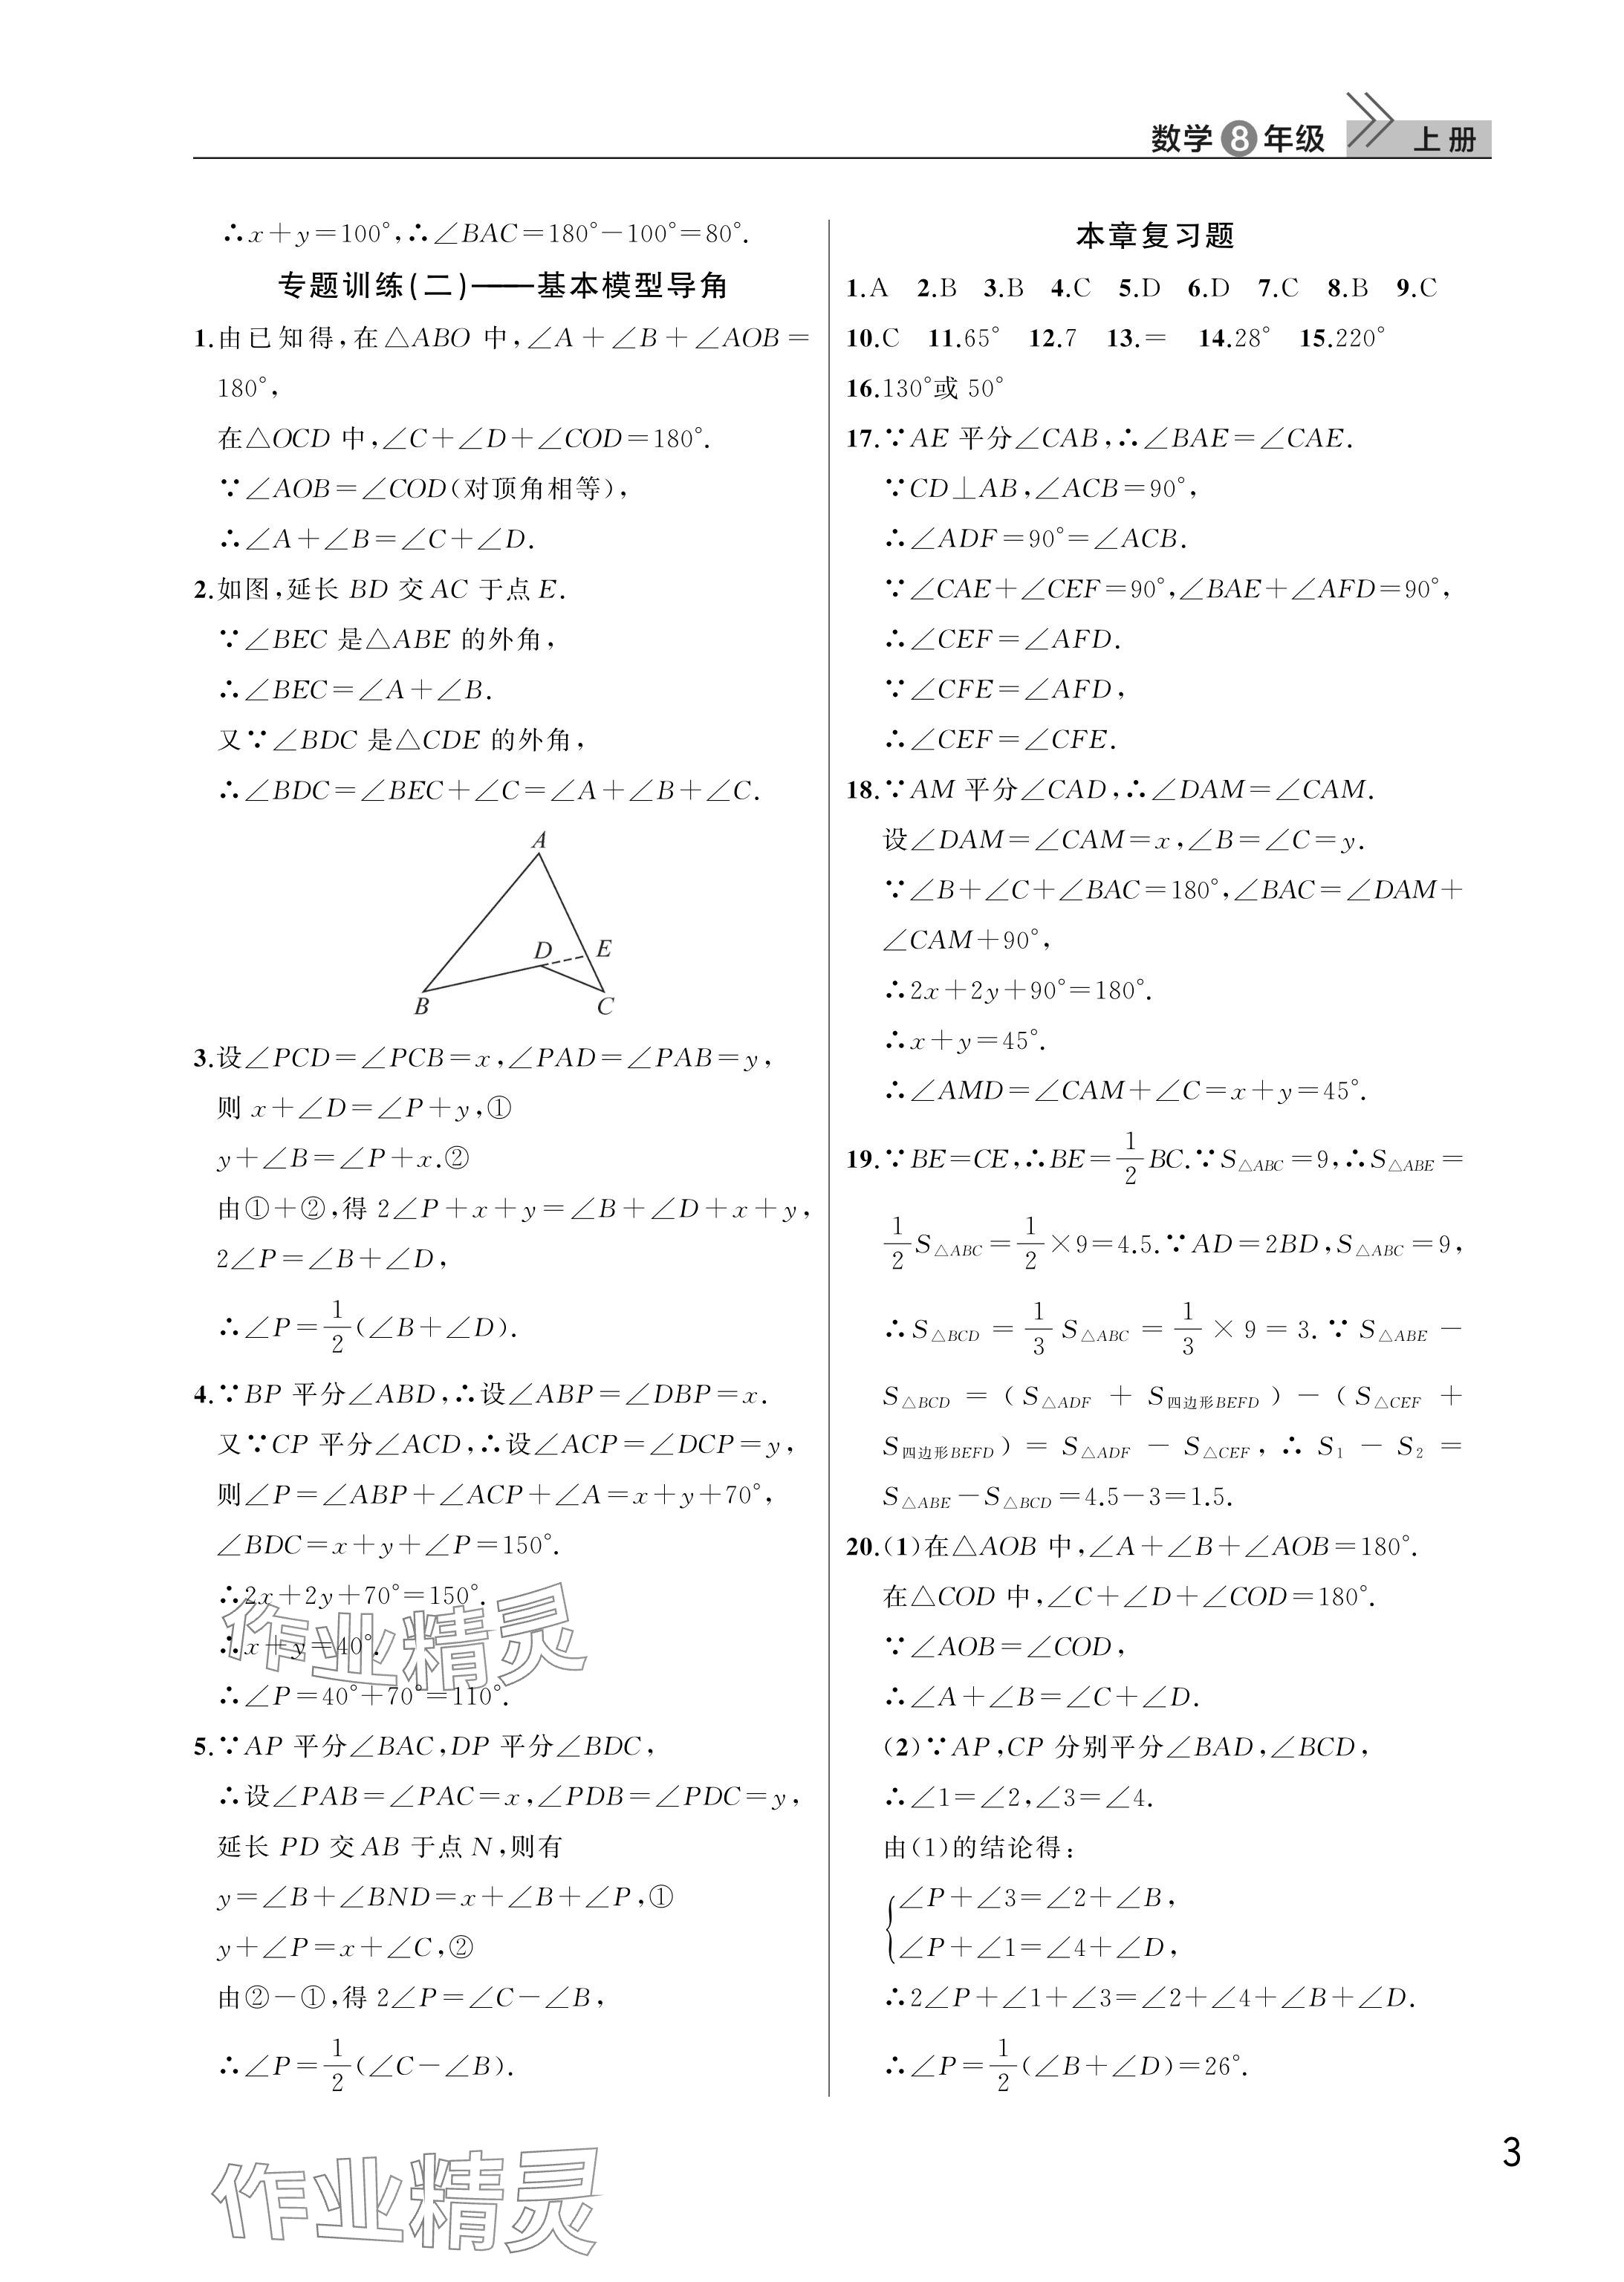 数学 8 年级 上册
∴x+y=100°,∴∠BAC=180°-100°=80°.
专题训练(二)——基本模型导角
1.由已知得,在△ABO 中,∠A+∠B+∠AOB=
180°,
在△OCD 中,∠C+∠D+∠COD=180°.
∵∠AOB=∠COD(对顶角相等),
∴∠A+∠B=∠C+∠D.
2.如图,延长 BD 交 AC 于点 E.
∵∠BEC 是△ABE 的外角,
∴∠BEC=∠A+∠B.
又∵∠BDC 是△CDE 的外角,
∴∠BDC=∠BEC+∠C=∠A+∠B+∠C.
A
D E
B C
3.设∠PCD=∠PCB=x,∠PAD=∠PAB=y,
则 x+∠D=∠P+y,①
y+∠B=∠P+x.②
由①+②,得 2∠P+x+y=∠B+∠D+x+y,
2∠P=∠B+∠D,
∴∠P=1/2(∠B+∠D).
4.∵BP 平分∠ABD,∴设∠ABP=∠DBP=x.
又∵CP 平分∠ACD,∴设∠ACP=∠DCP=y,
则∠P=∠ABP+∠ACP+∠A=x+y+70°,
∠BDC=x+y+∠P=150°.
∴2x+2y+70°=150°.
∴x+y=40°.
∴∠P=40°+70°=110°.
作业精灵
5.∵AP 平分∠BAC,DP 平分∠BDC,
∴设∠PAB=∠PAC=x,∠PDB=∠PDC=y,
延长 PD 交 AB 于点 N,则有
y=∠B+∠BND=x+∠B+∠P,①
y+∠P=x+∠C,②
由②-①,得 2∠P=∠C-∠B,
∴∠P=1/2(∠C-∠B).
本章复习题
1.A 2.B 3.B 4.C 5.D 6.D 7.C 8.B 9.C
10.C 11.65° 12.7 13.= 14.28° 15.220°
16.130°或 50°
17.∵AE 平分∠CAB,∴∠BAE=∠CAE.
∵CD⊥AB,∠ACB=90°,
∴∠ADF=90°=∠ACB.
∵∠CAE+∠CEF=90°,∠BAE+∠AFD=90°,
∴∠CEF=∠AFD.
∵∠CFE=∠AFD,
∴∠CEF=∠CFE.
18.∵AM 平分∠CAD,∴∠DAM=∠CAM.
设∠DAM=∠CAM=x,∠B=∠C=y.
∵∠B+∠C+∠BAC=180°,∠BAC=∠DAM+
∠CAM+90°,
∴2x+2y+90°=180°.
∴x+y=45°.
∴∠AMD=∠CAM+∠C=x+y=45°.
19.∵BE=CE,∴BE=1/2BC.∵S△ABC=9,∴S△ABE=
1/2S△ABC=1/2×9=4.5.∵AD=2BD,S△ABC=9,
∴S△BCD=1/3S△ABC=1/3×9=3.∵S△ABE-
S△BCD=(S△ADF+S四边形BEFD)-(S△CEF+
S四边形BEFD)=S△ADF-S△CEF,∴S1-S2=
S△ABE-S△BCD=4.5-3=1.5.
20.(1)在△AOB 中,∠A+∠B+∠AOB=180°.
在△COD 中,∠C+∠D+∠COD=180°.
∵∠AOB=∠COD,
∴∠A+∠B=∠C+∠D.
(2)∵AP,CP 分别平分∠BAD,∠BCD,
∴∠1=∠2,∠3=∠4.
由(1)的结论得:
{∠P+∠3=∠2+∠B,
∠P+∠1=∠4+∠D,
∴2∠P+∠1+∠3=∠2+∠4+∠B+∠D.
∴∠P=1/2(∠B+∠D)=26°.
3
作业精灵